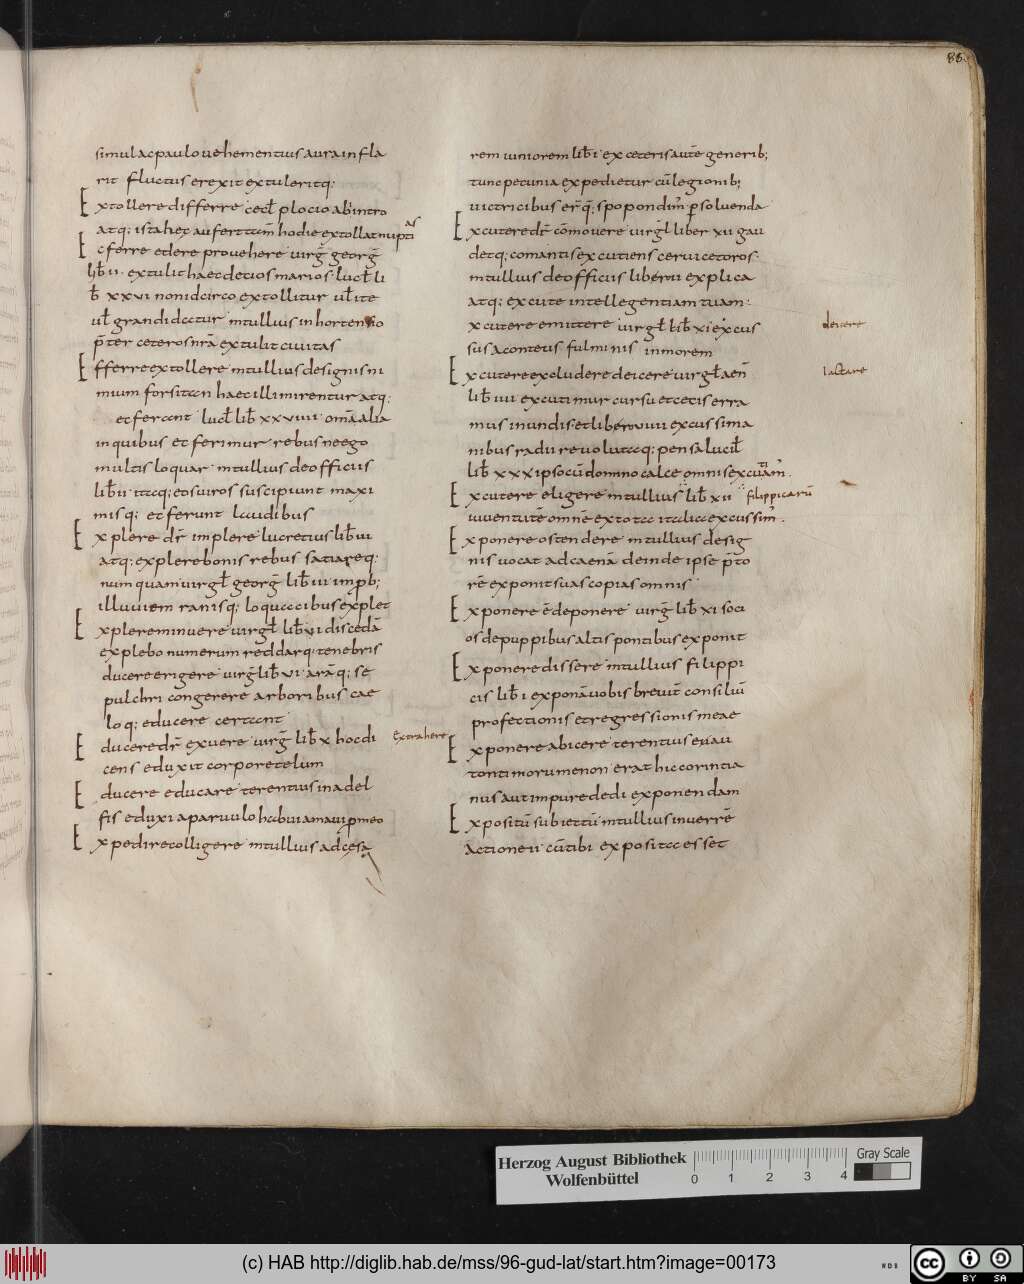 86.
simul ac paulo uehementius aura infla
rit fluctus erexit extuleritq;
Extollere differre cecł plocio ab intro
atq; ista hec aufert tam hodie extollat nuptias
Ecferre edere prouehere uirg̅ georg̅
lib̅ ii extulit haec decios marios lucł li
b̅ xxvi non idcirco extollitur uł ite
uł grandi datur m tullius in hortensio
p̅ter ceteros nr̅a extulit ciuitas
Efferre extollere m tullius de signis ni
mium forsitan haec illi mirentur atq;
et ferant lucł lib̅ xxviiii omn̅a alia
in quibus efferimur rebus ne ego
multis loquar m tullius de officiis
lib̅ ii itaq; eos uiros suscipiunt maxi
misq; efferunt laudibus
Explere dr̅ implere lucretius lib̅ vi
atq; explere bonis rebus satiareq;
numquam uirgł georg̅ lib̅ iii imp̅b;
illuuiem ranisq; loquacibus explet
Explere minuere uirgł lib̅ vi discedā
explebo numerum reddarq; tenebris
ducere erigere uirg̅ lib̅ vi arāq; se
pulchri congerere arboribus cae
loq; educere certant
Educere dr̅ exuere uirg̅ lib̅ x hoc di
Extrahere
cens eduxit corpore telum
Educere educare terentius in adel
fis eduxi a paruulo habui amaui p̱ meo
Expedire colligere m tullius ad cęsa
rem iuniorem lib̅ i ex ceteris aute̅ generib;
tunc pecunia expedietur cū legionib;
uictricibus erq̅; spopondim̅ p̱soluenda
Excutere dr̅ co̅mouere uirgł liber xii gau
detq; comantis excutiens ceruice toros
m tullius de officiis libero iii explica
atq; excute intellegentiam tuam
xcutere emittere uirgł lib̅ xi excus
deicere
sus aconteus fulminis in morem
Excutere excludere deicere uirgł aen̅
iactare
lib̅ iii excutimur cursu et cecis erra
mus in undis et libero viiii excussima
nibus radii reuolutaq; pensa lucił
lib̅ xxx ipsocū domino calce omnis excutiam̅.
Excutere eligere m tullius lib̅ xii filippicarū
iuuentute̅ omne̅ ex tota italia excussim̅.
Exponere ostendere m tullius desig
nis uocat ad caenā deinde ipse p̅to
re̅ exponit suas copias omnis
Exponere e̅ deponere uirg̅ lib̅ xi soci
os de puppibus altis pontibus exponit
Exponere dissere m tullius filippi
cis lib̅ i exponā uobis breuit̅ consiliū
profectionis et regressionis meae
Exponere abicere terentius eyau
tontimorumenon erat hic corintia
nus aut impure dedi exponendam
Expositū subiectū m tullius in uerre̅
actione ii cūtibi exposita esset
Herzog August Bibliothek
Wolfenbüttel
0 1 2 3 4
Gray Scale
(c) HAB http://diglib.hab.de/mss/96-gud-lat/start.htm?image=00173
WDB
cc BY SA